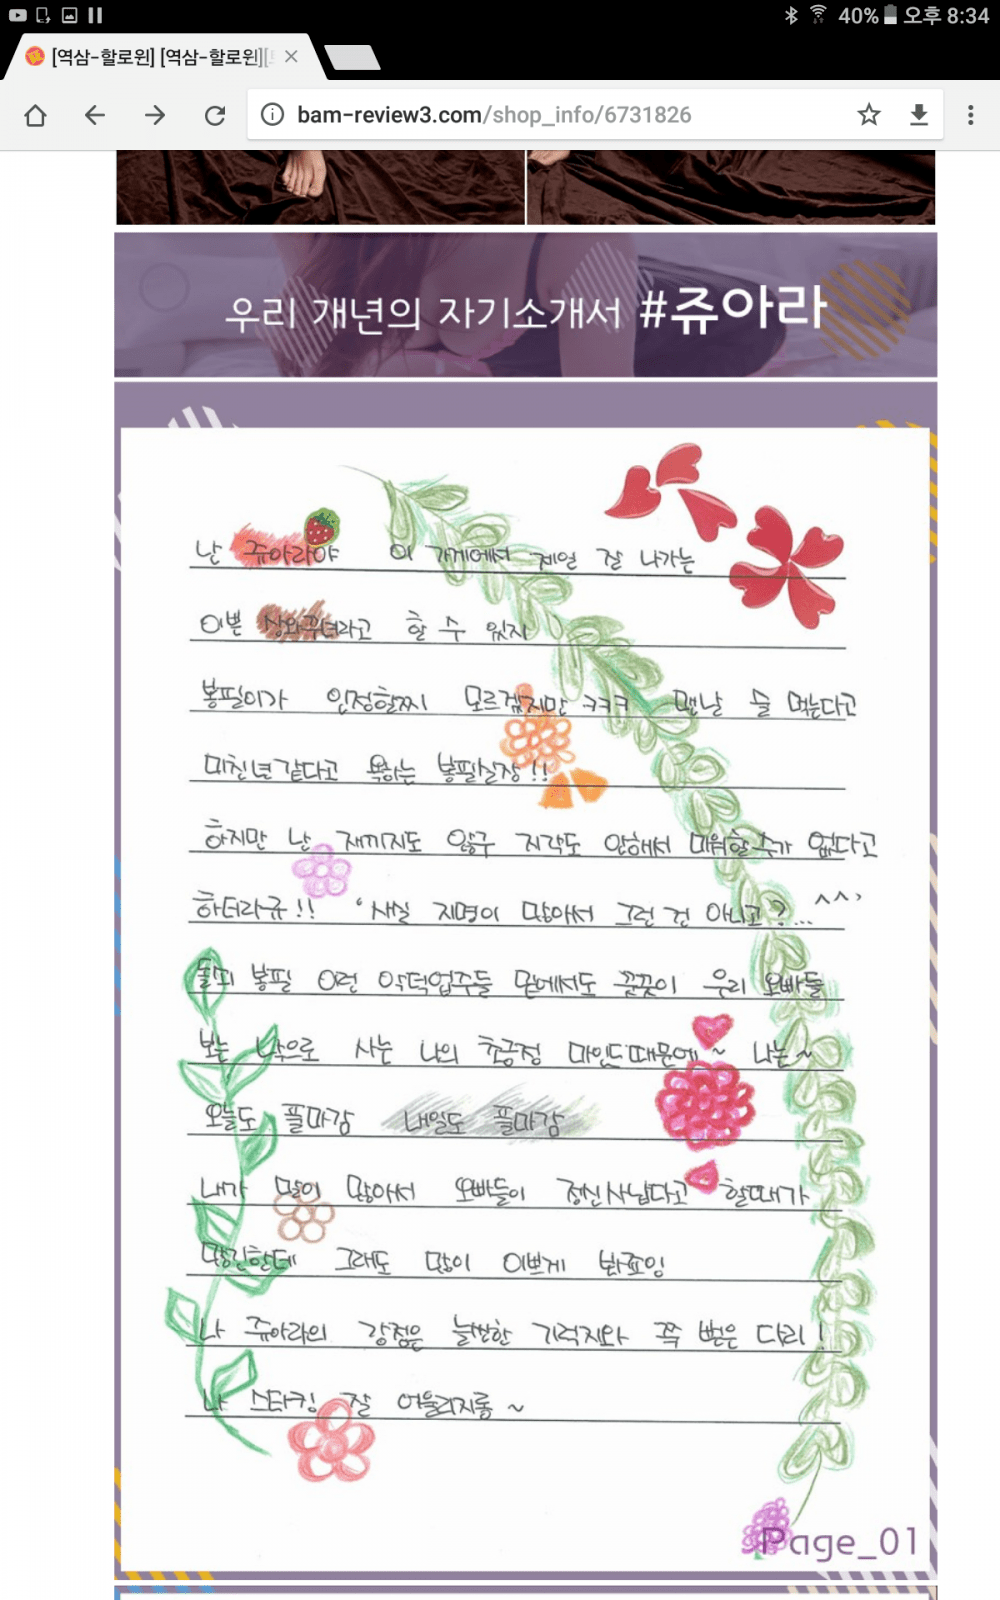 40% 오후 8:34
[역삼-할로윈] [역삼-할로윈]
bam-review3.com/shop_info/6731826
우리 개년의 자기소개서 #쥬아라
난 쥬아라야 이 가게에서 제일 잘 나가는
이쁜 상와꾸녀라고 할 수 있지
봉필이가 인정할찌 모르겠지만 ㅋㅋㅋ 맨날 술 먹는다고
미친년같다고 욕하는 봉필실장!!
하지만 난 재끼지도 않구 지각도 안해서 미워할수가 없다고
하더라규!! '사실 지명이 많아서 그런 건 아니고?... ^^'
돌쇠 봉필 이런 악덕업주들 밑에서도 꿋꿋이 우리 오빠들
보는 낙으로 사는 나의 초긍정 마인드때문에~ 나는~
오늘도 풀마감 내일도 풀마감
내가 말이 많아서 오빠들이 정신사납다고 할때가
많긴한데 그래도 많이 이쁘게 봐죠잉
나 쥬아라의 강점은 늘씬한 기럭지와 쭉 뻗은 다리!
나 스타킹 잘 어울리지롱~
Page_01